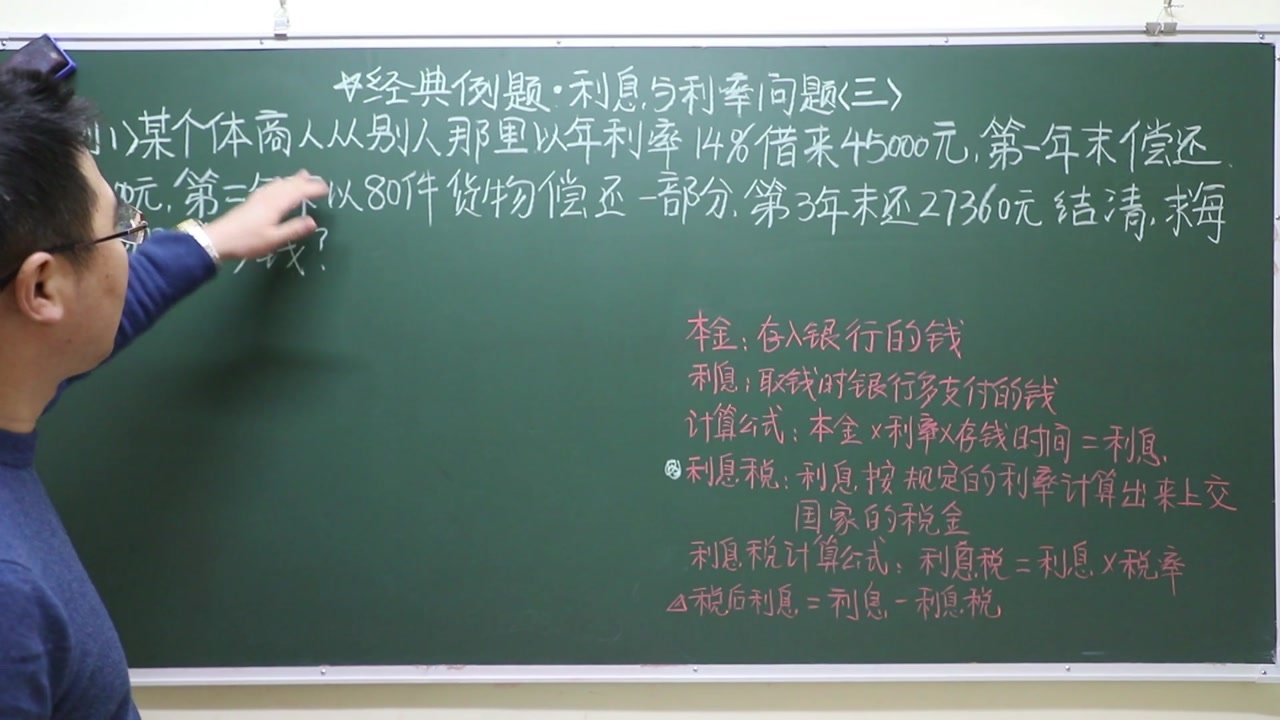 经典例题·利息与利率问题<三>
1>某个体商人从别人那里以年利率14%借来45000元,第一年末偿还
0元,第二年 以80件货物偿还一部分,第3年末还27360元结清,求每
钱?
本金:存入银行的钱
利息:取钱时银行多支付的钱
计算公式:本金×利率×存钱时间=利息
利息税:利息按规定的利率计算出来上交
国家的税金
利息税计算公式:利息税=利息×税率
△税后利息=利息-利息税